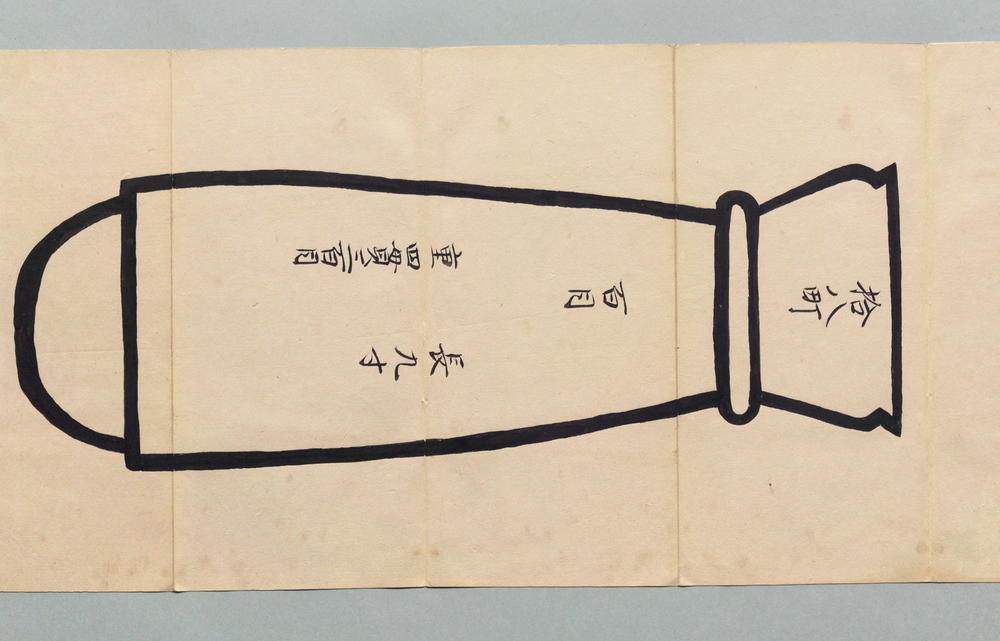 拾八町
百目
長九寸
重四貫三百目